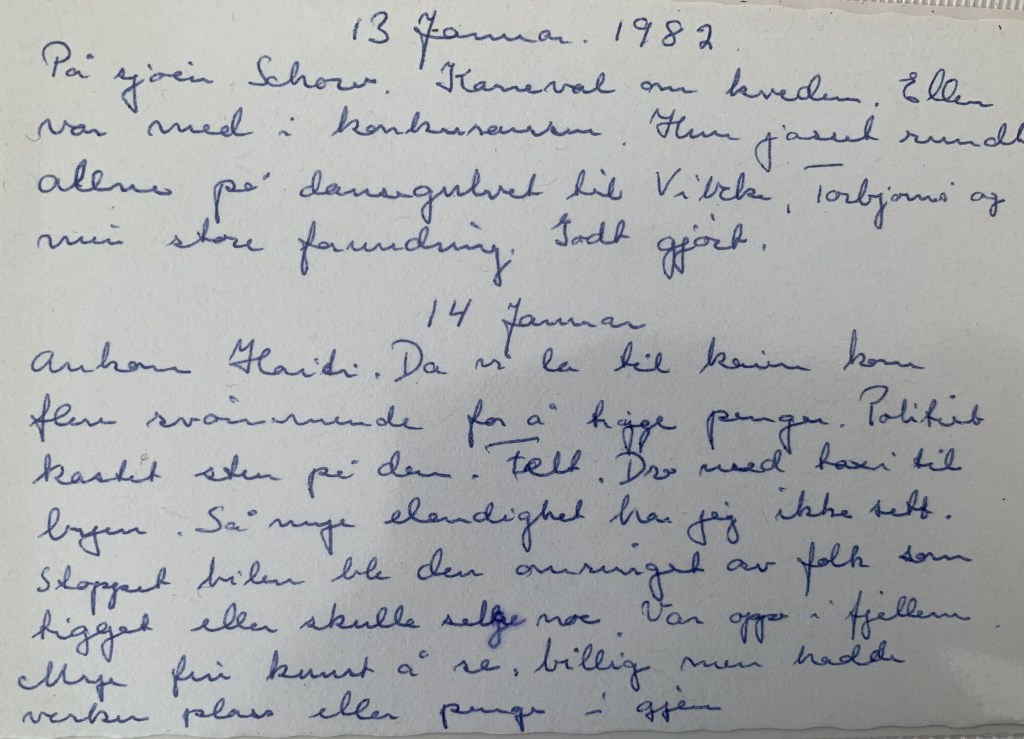 13 Januar. 1982
På sjøen Show. Karneval om kvelden. Ellen
var med i konkuransen. Hun jaset rundt
alene på dansegulvet til Vibeke, Torbjørns og
min store forundring. Godt gjørt.
14 Januar
Ankom Haiti. Da vi la til kaien kom
flere svømmende for å tigge penger. Politiet
kastet sten på dem. Fælt. Dro med taxi til
byen. Så mye elendighet har jeg ikke sett.
Stoppet bilen ble den omringet av folk som
tigget eller skulle selge noe. Var oppe i fjellene
Mye fin kunst å se, billig men hadde
verken plass eller penge i gjen